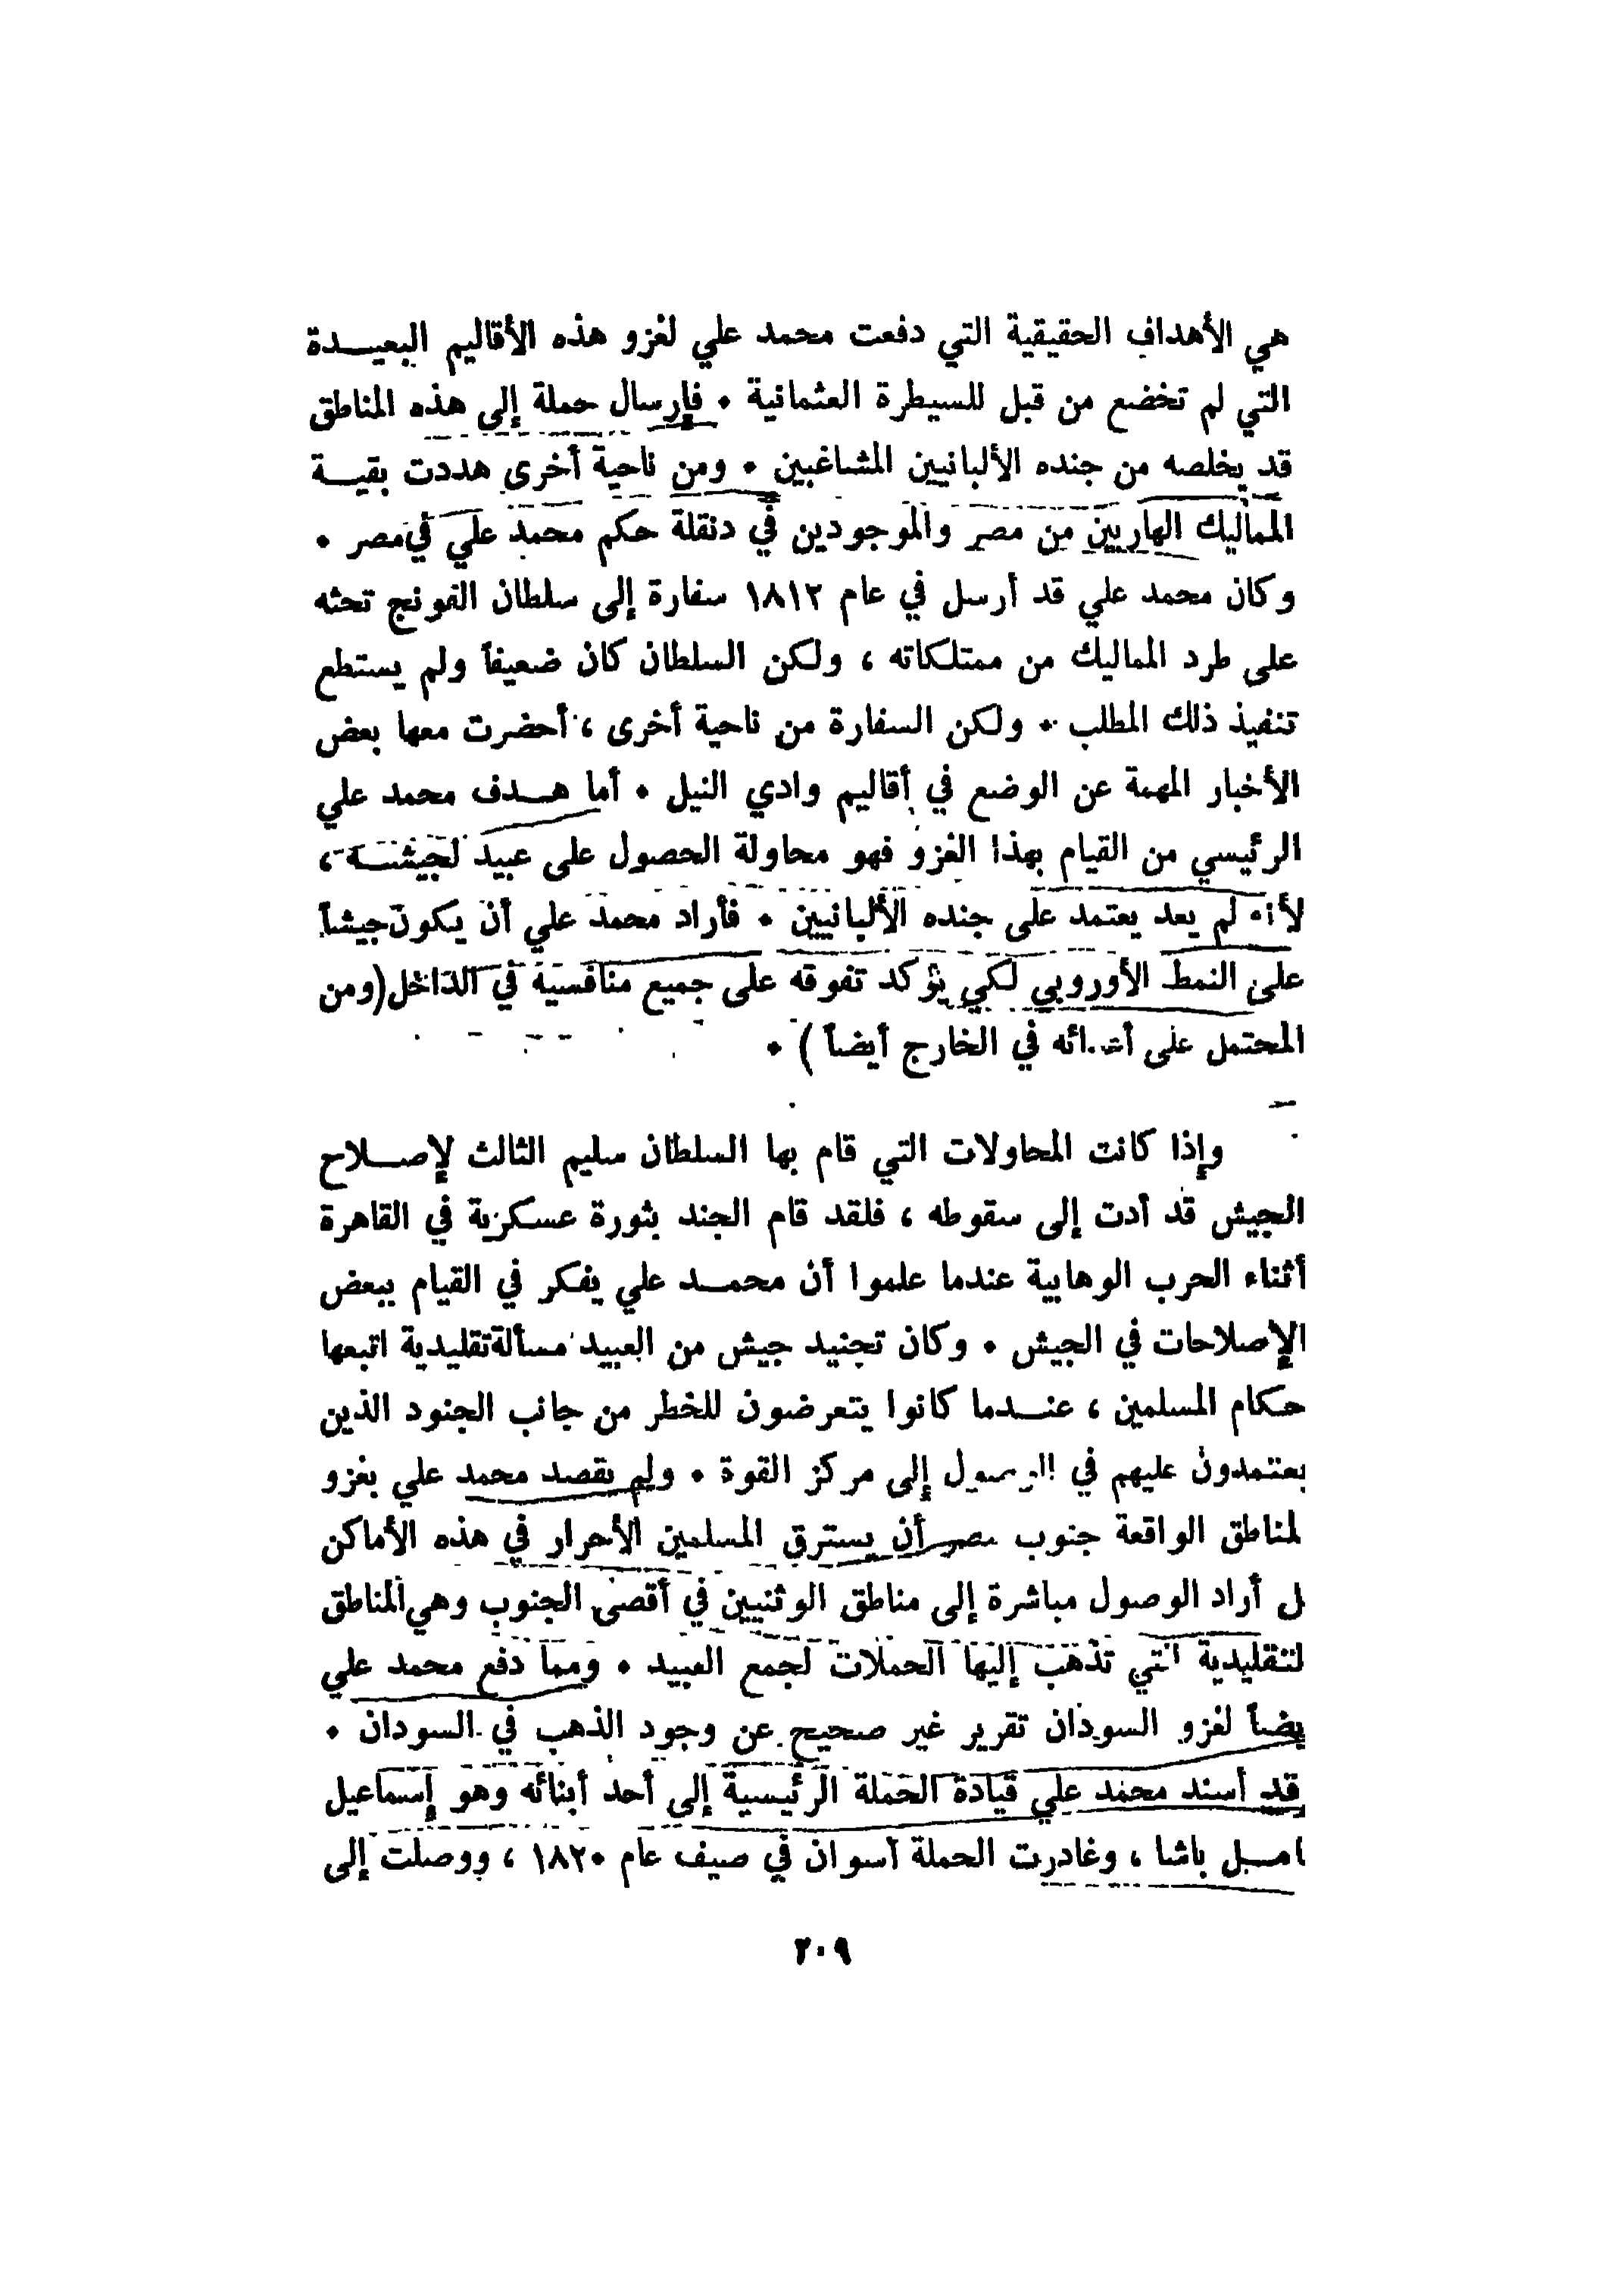 هي الأهداف الحقيقية التي دفعت محمد علي لغزو هذه الأقاليم البعيـــدة
التي لم تخضع من قبل للسيطرة العثمانية ٠ فإرسال حملة إلى هذه المناطق
قد يخلصه من جنده الألبانيين المشاغبين ٠ ومن ناحية أخرى هددت بقيـــة
المماليك الهاربين من مصر والموجودين في دنقلة حكم محمد علي في مصر ٠
وكان محمد علي قد أرسل في عام ١٨١٢ سفارة إلى سلطان الفونج تحثه
على طرد المماليك من ممتلكاته ، ولكن السلطان كان ضعيفاً ولم يستطع
تنفيذ ذلك المطلب ٠ ولكن السفارة من ناحية أخرى ، أحضرت معها بعض
الأخبار المهمة عن الوضع في أقاليم وادي النيل ٠ أما هـــدف محمد علي
الرئيسي من القيام بهذا الغزو فهو محاولة الحصول على عبيد لجيشـــه ،
لأنه لم يعد يعتمد على جنده الألبانيين ٠ فأراد محمد علي أن يكون جيشاً
على النمط الأوروبي لكي يؤكد تفوقه على جميع منافسيه في الداخل (ومن
المحتمل على في الخارج أيضاً ) ٠
وإذا كانت المحاولات التي قام بها السلطان سليم الثالث لإصـــلاح
الجيش قد أدت إلى سقوطه ، فلقد قام الجند بثورة عسكرية في القاهرة
أثناء الحرب الوهابية عندما علموا أن محمـــد علي يفكر في القيام ببعض
الإصلاحات في الجيش ٠ وكان تجنيد جيش من العبيد مسألة تقليدية اتبعها
حكام المسلمين ، عنـــدما كانوا يتعرضون للخطر من جانب الجنود الذين
يعتمدون عليهم في الوصول إلى مركز القوة ٠ ولم يقصد محمد علي بغزو
لمناطق الواقعة جنوب مصر أن يسترق المسلمين الأحرار في هذه الأماكن
ل أراد الوصول مباشرة إلى مناطق الوثنيين في أقصى الجنوب وهي المناطق
لتقليدية التي تذهب إليها الحملات لجمع العبيد ٠ ومما دفع محمد علي
يضاً لغزو السودان تقرير غير صحيح عن وجود الذهب في السودان ٠
قد أسند محمد علي قيادة الحملة الرئيسية إلى أحد أبنائه وهو إسماعيل
امـــل باشا ، وغادرت الحملة أسوان في صيف عام ١٨٢٠ ، ووصلت إلى
٢٠٩